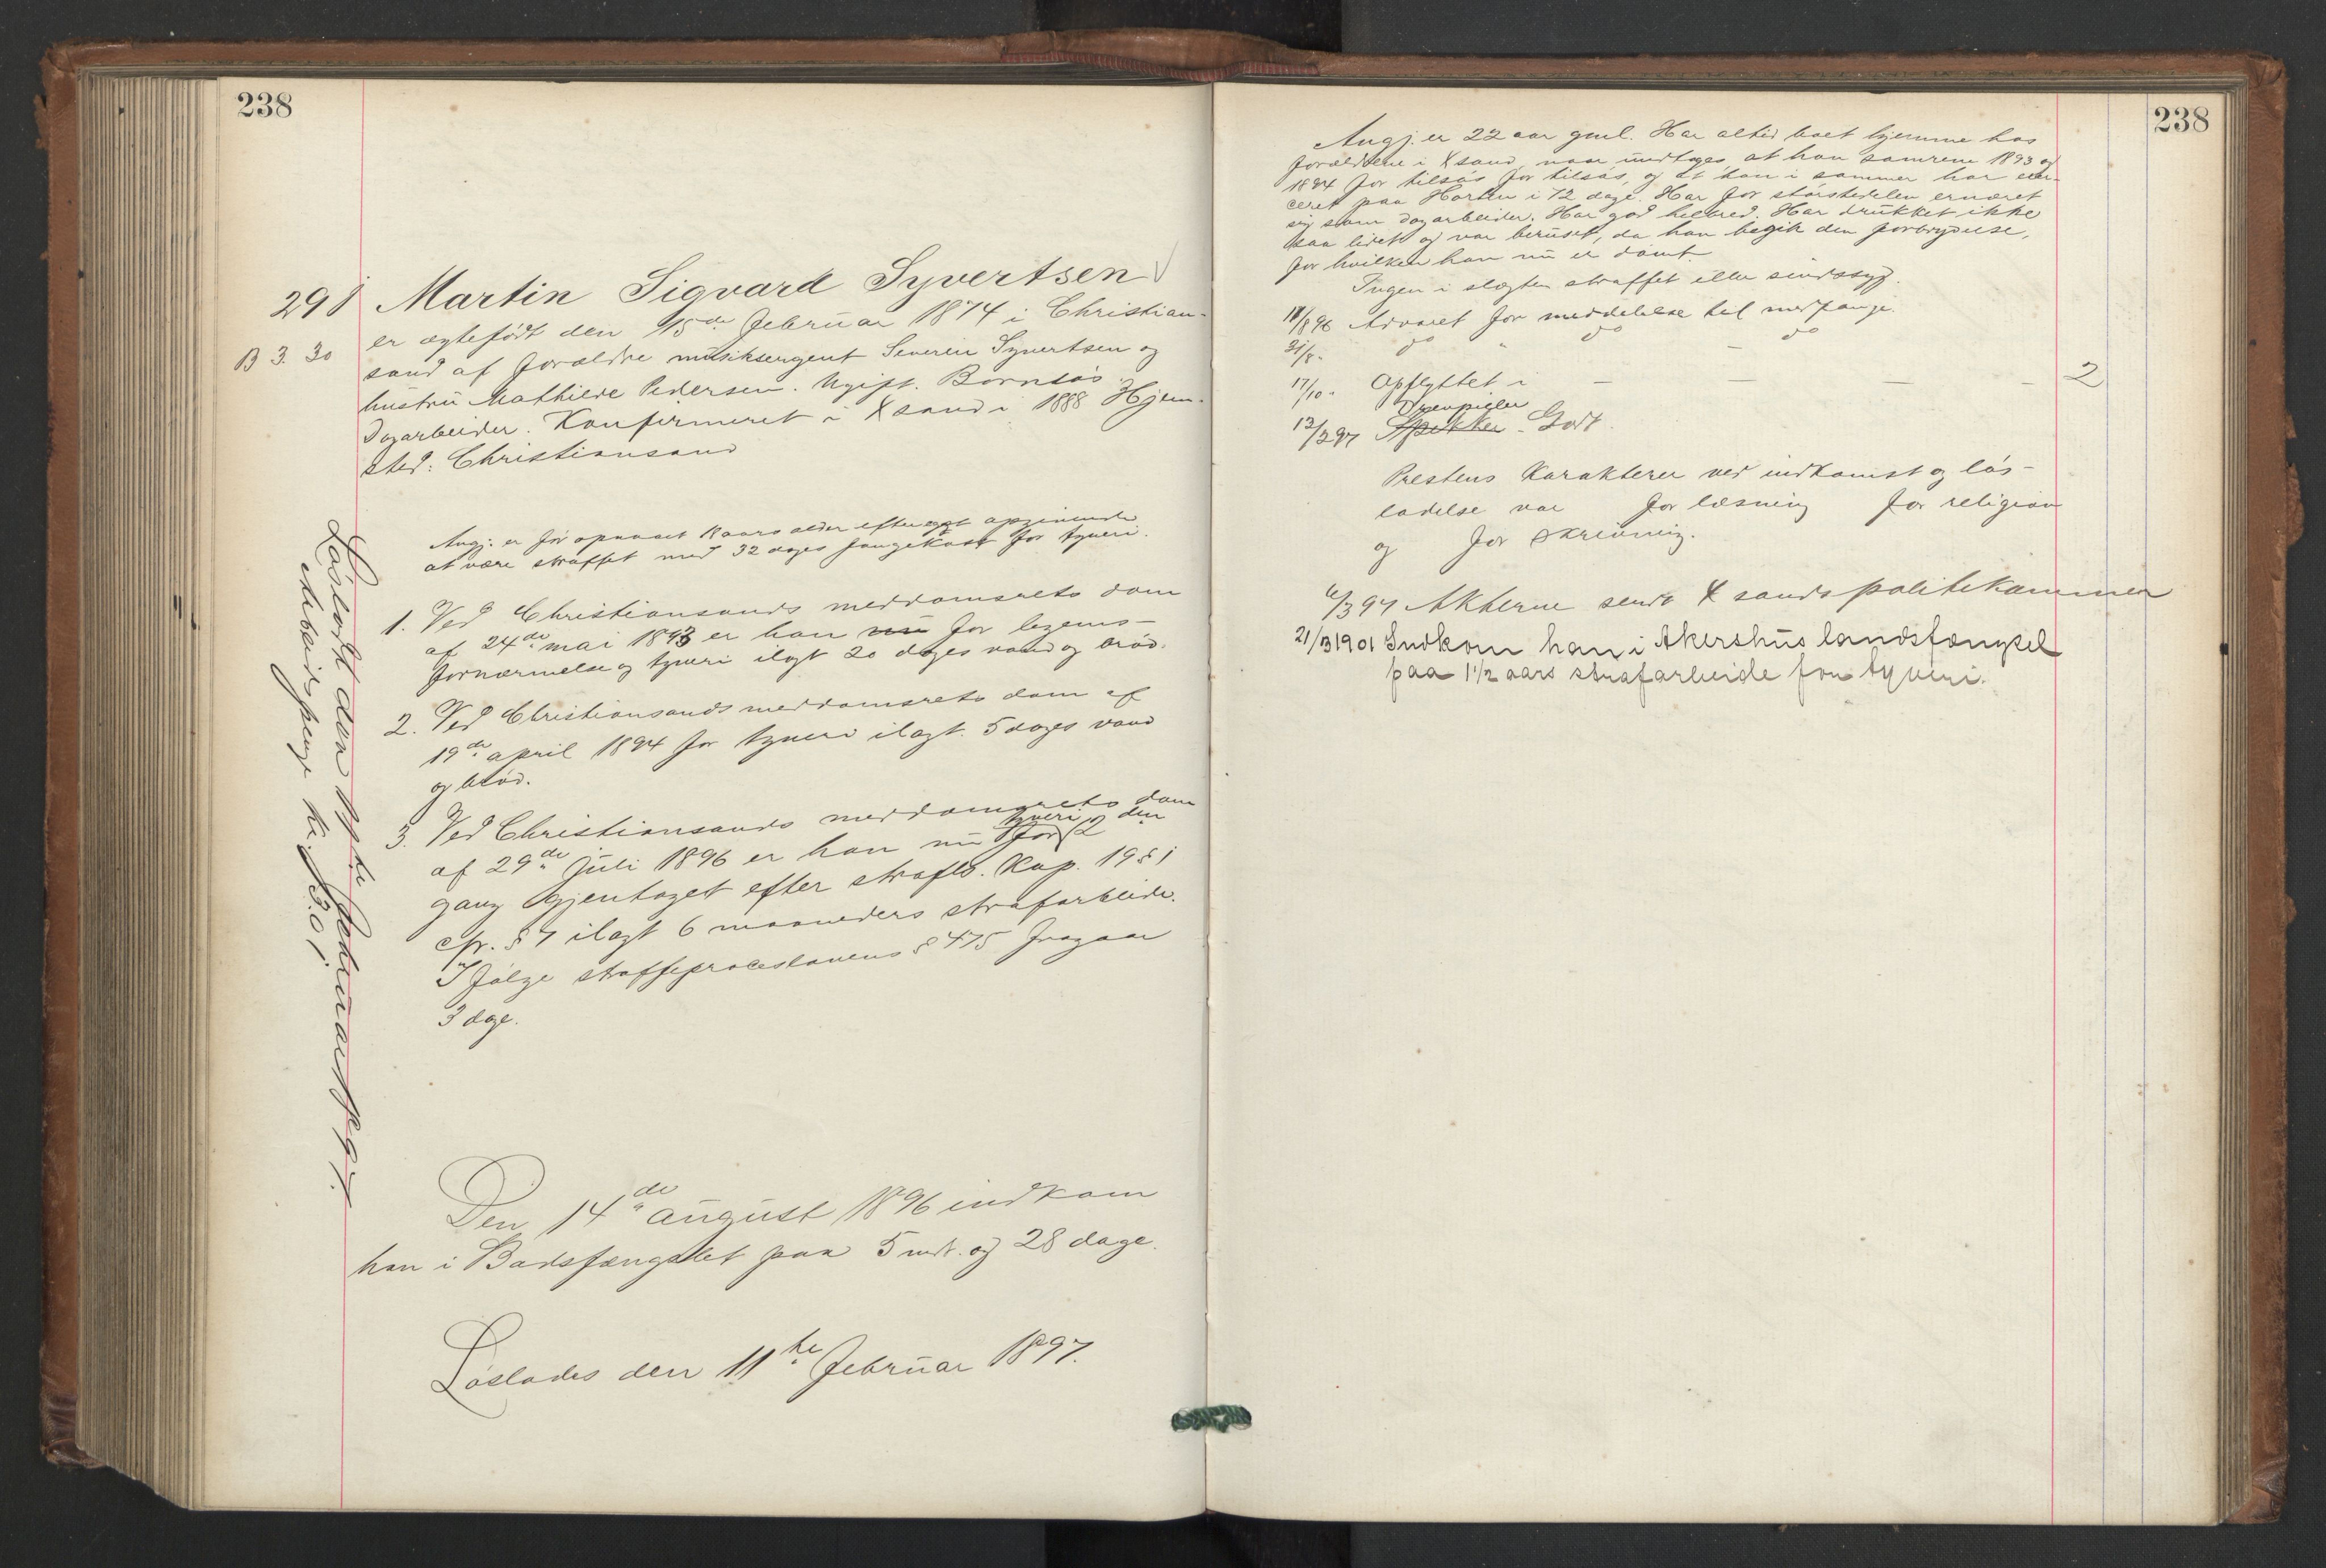 238
291 Martin Sigvard Syvertsen
er ægtefödt den 15de februar 1874 i Christian-
B 3. 30
sand af forældre musiksergent Severin Syvertsen og
hustru Mathilde Pedersen. Ugift. Barnlös.
Dagarbeider. Konfirmeret i Xsand i 1888 Hjem-
sted: Christiansand
Angj. er för opnaaet 18 aars alder efter eget opgivende
at være straffet med 32 dages fangekost for tyveri.
1. Ved Christiansands meddomsrets dom
af 24de mai 1893 er han nu for legems-
fornærmelse og tyveri ilagt 20 dages vand og bröd.
2. Ved Christiansands meddomsrets dom af
19de april 1894 for tyveri ilagt 5 dages vand
og bröd.
3. Ved Christiansands meddomsrets dom
af 29de juli 1896 er han nu for tyveri 2den
gang gjentaget efter straffel. Kap. 19 § 1
cfr. § 7 ilagt 6 maaneders strafarbeide.
I fölge straffeproceslovens § 475 fragaar
3 dage.
Den 14de august 1896 indkom
han i Bodsfængslet paa 5 mdr. og 28 dage.
Löslades den 11te februar 1897.
Lösladt den 11te februar 1897.
Arbeidspenge kr.
238
Angj. er 22 aar gml. Har altid boet hjemme hos
forældrene i Xsand, naar undtages at han somrene 1893 og
1894 for tilsös for tilsös, og at han i sommer har exer-
ceret paa Horten i 72 dage. Har for störstedelen ernæret
sig som dagarbeider. Har god helbred. Har drukket ikke
saa lidet og var beruset, da han begik den forbrydelse,
for hvilken han nu er dömt.
Ingen i slægten straffet eller sindssyg.
18/8 96 Advaret for meddelelse til medfange.
31/8 " do " do — do
17/10 " Opflyttet i — — — — 2
13/2 97 Spikker Godt.
Prestens Karakterer ved indkomst og lös-
ladelse var for læsning for religion
og for skrivning.
6/3 97 Akterne sendt Xsands politikammer
21/3 1901 Indkom han i Akershus landsfængsel
paa 1 1/2 aars strafarbeide for tyveri.